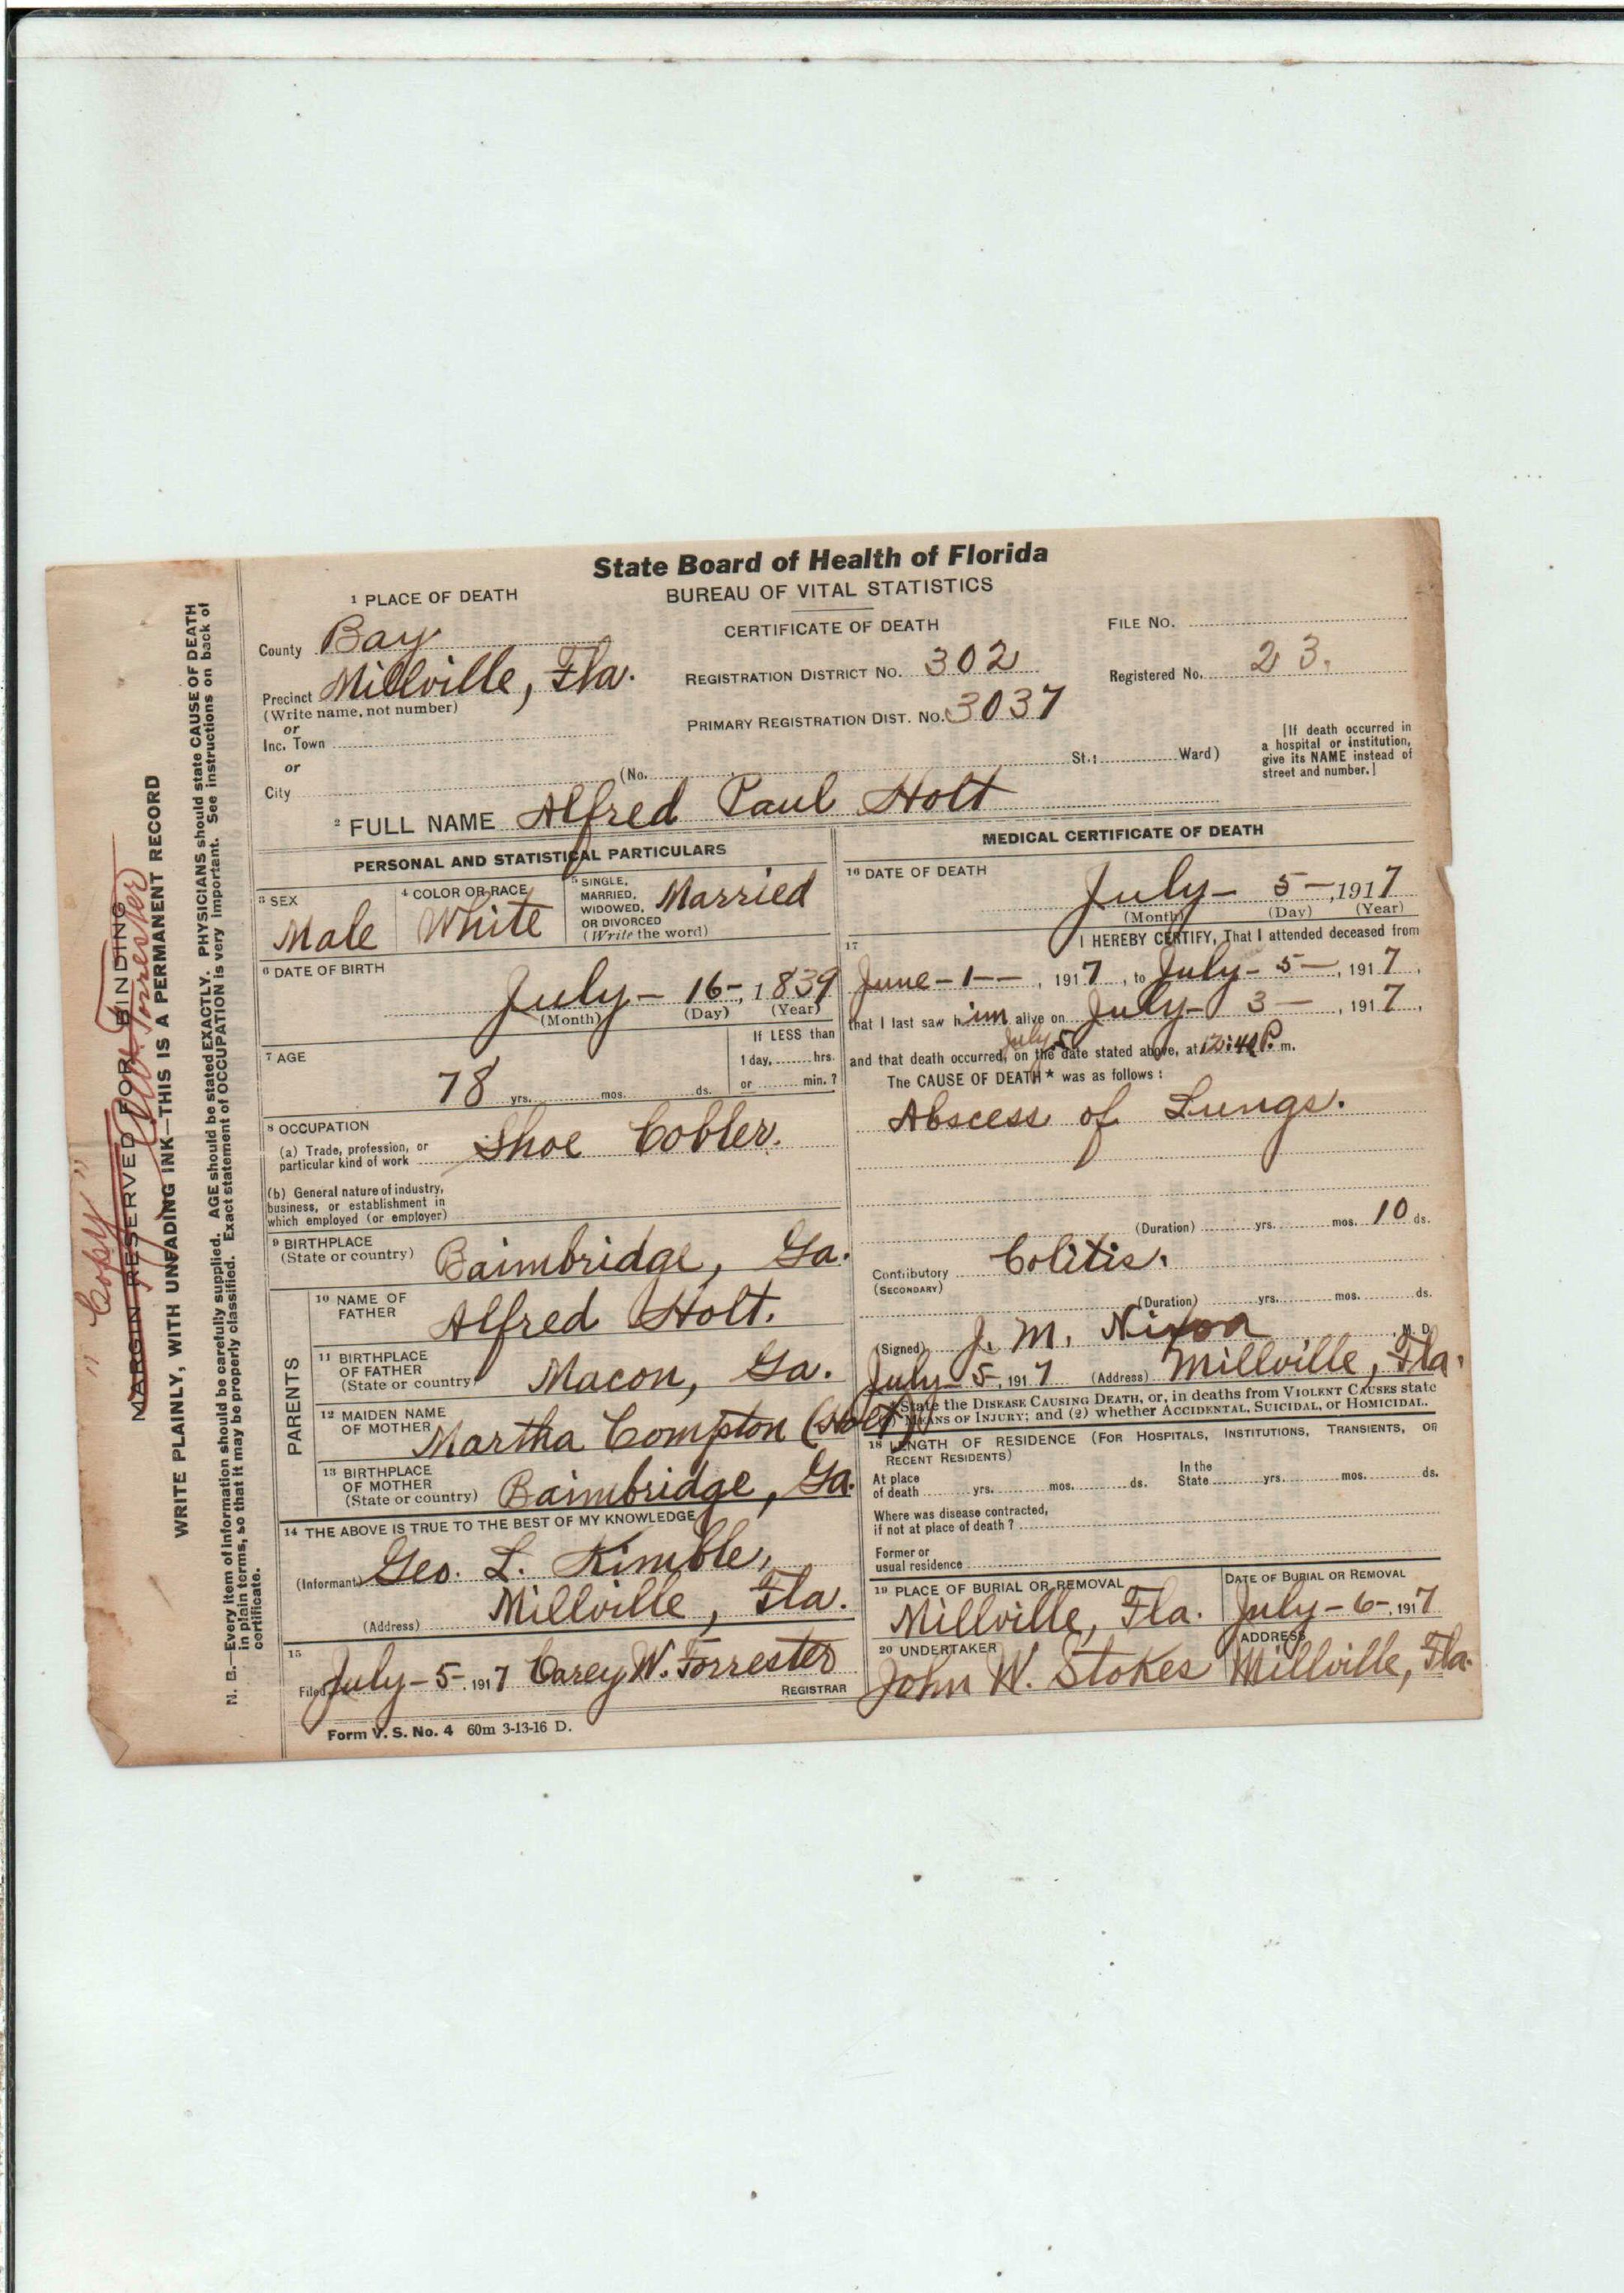 State Board of Health of Florida
BUREAU OF VITAL STATISTICS
CERTIFICATE OF DEATH
1 PLACE OF DEATH
County Bay
Precinct Millville, Fla.
(Write name, not number)
or
Inc. Town
or
City
REGISTRATION DISTRICT No. 302
PRIMARY REGISTRATION DIST. No. 3037
FILE No.
Registered No. 23.
(No. St.; Ward)
[If death occurred in
a hospital or institution,
give its NAME instead of
street and number.]
2 FULL NAME Alfred Paul Holt
PERSONAL AND STATISTICAL PARTICULARS
3 SEX
Male
4 COLOR OR RACE
White
5 SINGLE,
MARRIED,
WIDOWED,
OR DIVORCED
(Write the word)
Married
6 DATE OF BIRTH
July - 16 -, 1839
(Month) (Day) (Year)
7 AGE
78 yrs. mos. ds.
If LESS than
1 day, hrs.
or min.?
8 OCCUPATION
(a) Trade, profession, or
particular kind of work Shoe Cobler.
(b) General nature of industry,
business, or establishment in
which employed (or employer)
9 BIRTHPLACE
(State or country) Baimbridge, Ga.
PARENTS
10 NAME OF
FATHER Alfred Holt.
11 BIRTHPLACE
OF FATHER
(State or country) Macon, Ga.
12 MAIDEN NAME
OF MOTHER Martha Compton (Holt)
13 BIRTHPLACE
OF MOTHER
(State or country) Baimbridge, Ga.
14 THE ABOVE IS TRUE TO THE BEST OF MY KNOWLEDGE
(Informant) Geo. L. Kimble,
(Address) Millville, Fla.
15
Filed July - 5 -, 1917 Carey W. Forrester
REGISTRAR
Form V. S. No. 4 60m 3-13-16 D.
MEDICAL CERTIFICATE OF DEATH
16 DATE OF DEATH
July - 5 -, 1917
(Month) (Day) (Year)
17 I HEREBY CERTIFY, That I attended deceased from
June - 1 - -, 1917, to July - 5 -, 1917,
that I last saw him alive on July - 3 -, 1917,
July 5
and that death occurred, on the date stated above, at 12:40 P. m.
The CAUSE OF DEATH* was as follows:
Abscess of Lungs.
(Duration) yrs. mos. 10 ds.
Contributory Colitis.
(SECONDARY)
(Duration) yrs. mos. ds.
(Signed) J. M. Nixon M. D.
July - 5, 1917 (Address) Millville, Fla.
State the DISEASE CAUSING DEATH, or, in deaths from VIOLENT CAUSES state
MEANS OF INJURY; and (2) whether ACCIDENTAL, SUICIDAL, or HOMICIDAL.
18 LENGTH OF RESIDENCE (FOR HOSPITALS, INSTITUTIONS, TRANSIENTS, OR
RECENT RESIDENTS)
At place
of death yrs. mos. ds.
In the
State yrs. mos. ds.
Where was disease contracted,
if not at place of death?
Former or
usual residence
19 PLACE OF BURIAL OR REMOVAL
Millville, Fla.
DATE OF BURIAL OR REMOVAL
July - 6 -, 1917
20 UNDERTAKER
John W. Stokes
ADDRESS
Millville, Fla.
"Copy"
MARGIN RESERVED FOR BINDING
Forrester
WRITE PLAINLY, WITH UNFADING INK—THIS IS A PERMANENT RECORD
N. B.—Every item of information should be carefully supplied. AGE should be stated EXACTLY. PHYSICIANS should state CAUSE OF DEATH
in plain terms, so that it may be properly classified. Exact statement of OCCUPATION is very important. See instructions on back of
certificate.